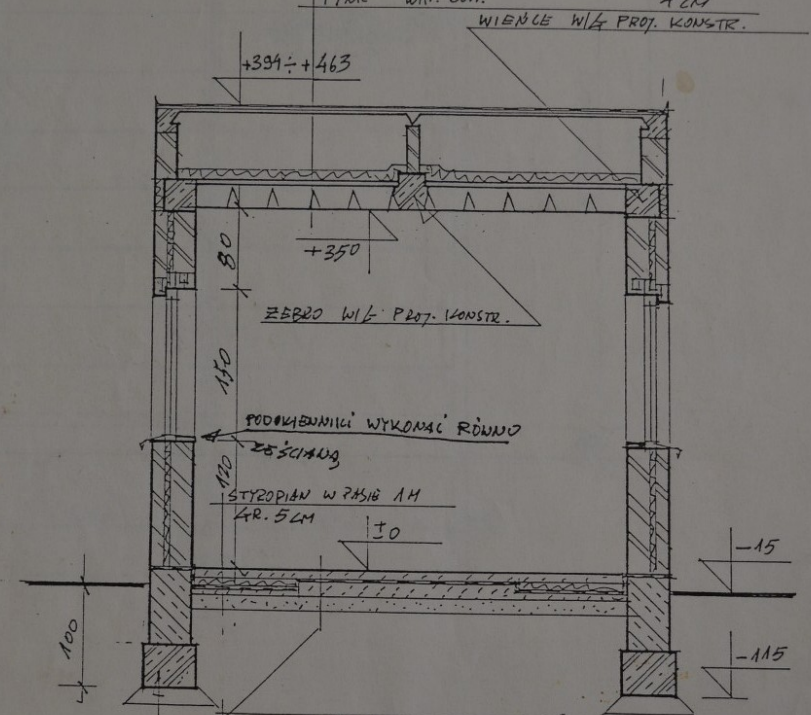 4 CM
WIEŃCE W/G PROJ. KONSTR.
+394÷+463
+350
80
ŻEBRO W/G PROJ. KONSTR.
150
PODOKIENNIKI WYKONAĆ RÓWNO
ZE ŚCIANĄ
120
STYROPIAN W PASIE 1M
GR. 5 CM
±0
-15
100
-115